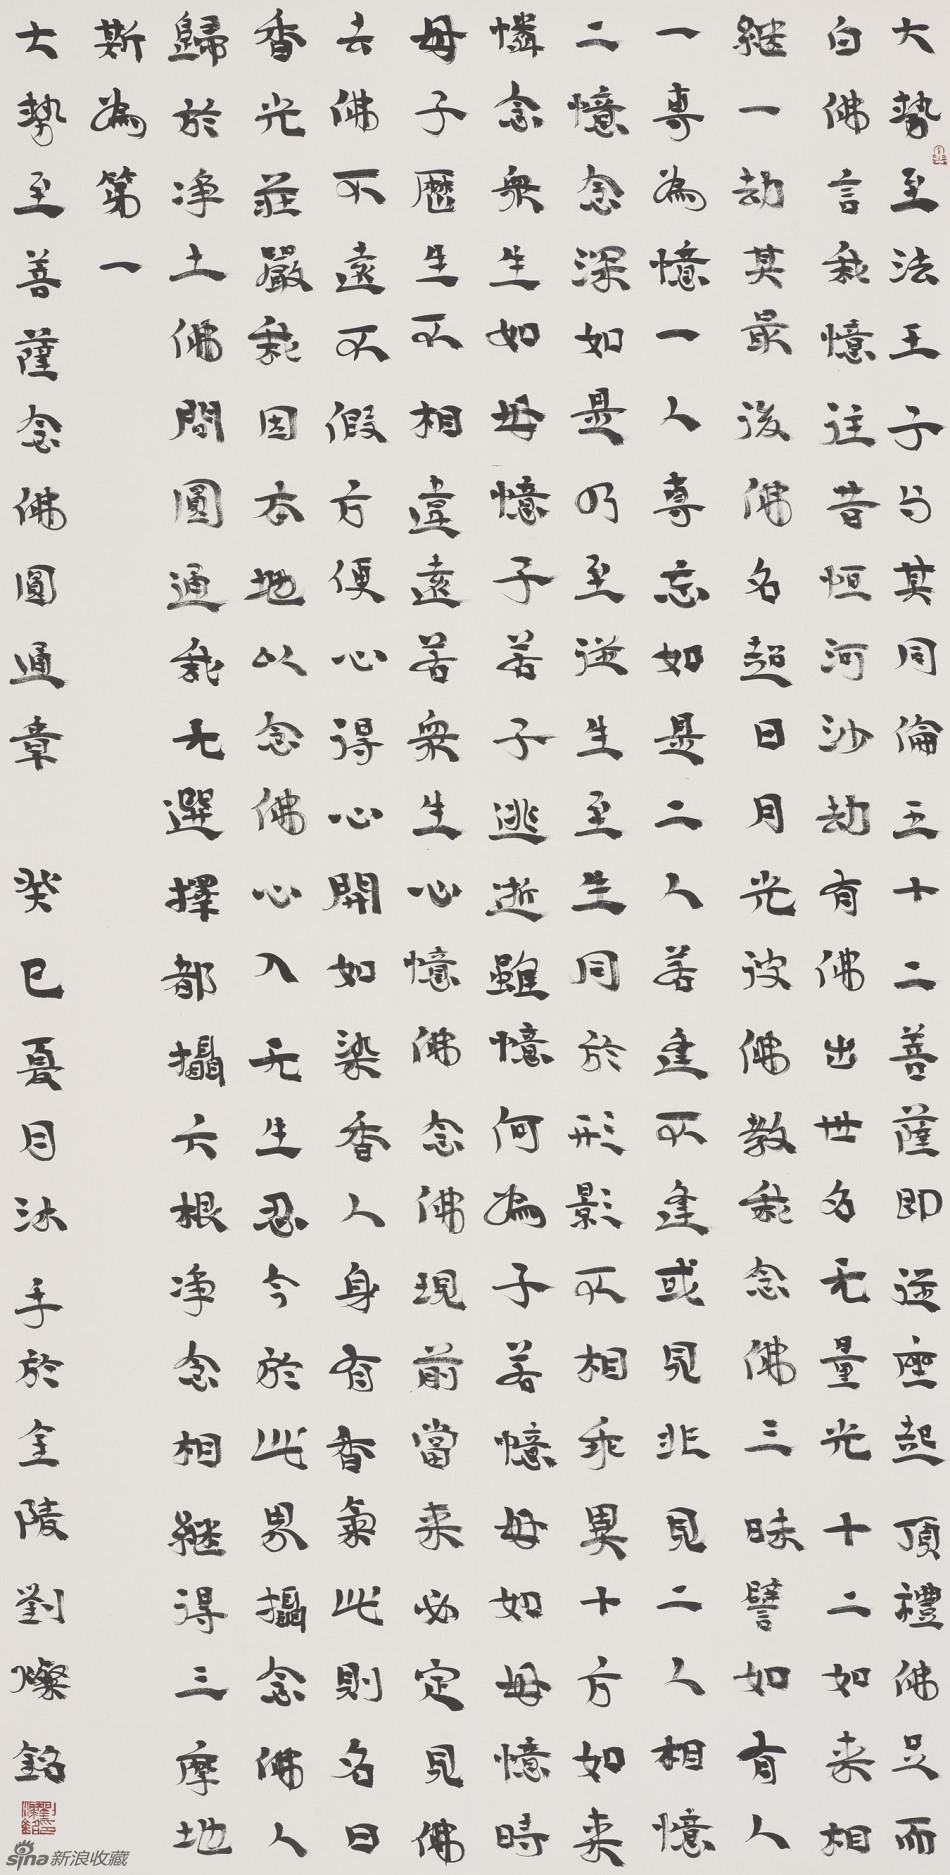 大勢至法王子与其同倫五十二菩薩即從座起頂禮佛足而
白佛言我憶往昔恒河沙劫有佛出世名无量光十二如来相
継一劫其最後佛名超日月光彼佛教我念佛三昧譬如有人
一專為憶一人專忘如是二人若逢不逢或見非見二人相憶
二憶念深如是乃至從生至生同於形影不相乖異十方如来
憐念衆生如母憶子若子逃逝雖憶何為子若憶母如母憶時
母子歷生不相違遠若衆生心憶佛念佛現前當来必定見佛
去佛不遠不假方便心得心開如染香人身有香氣此則名曰
香光莊嚴我因本地以念佛心入无生忍今於此界攝念佛人
歸於净土佛問圓通我无選擇都攝六根净念相継得三摩地
斯為第一
大勢至菩薩念佛圓通章 癸巳夏月沐手於金陵劉燦銘
sina新浪收藏